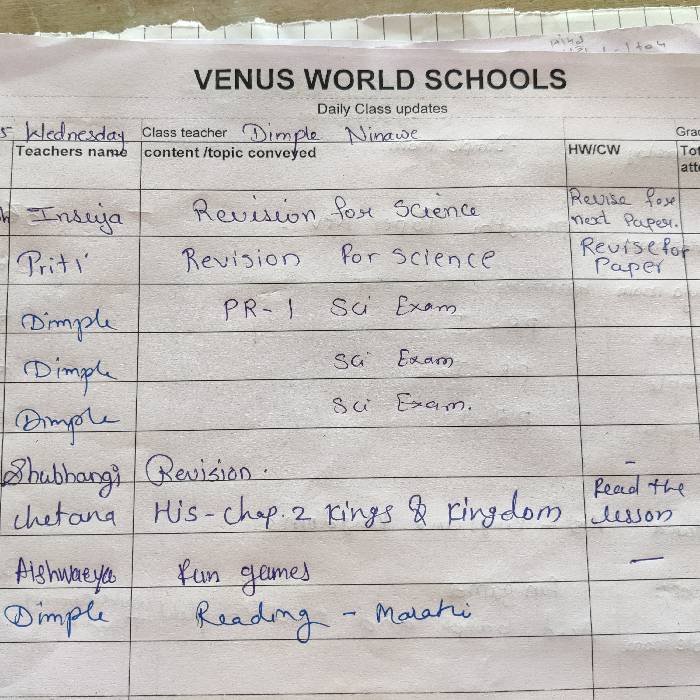 VENUS WORLD SCHOOLS
Daily Class updates
Wednesday Class teacher Dimple Ninawe
Teachers name content /topic conveyed HW/CW
Insuja Revision for Science Revise for
next Paper.
Priti Revision for Science Revise for
Paper
Dimple PR-1 Sci Exam
Dimple Sci Exam
Dimple Sci Exam.
Shubhangi Revision. -
Chetana His-Chap. 2 Kings & Kingdom Read the
lesson
Aishwaeya Fun games -
Dimple Reading - Marathi